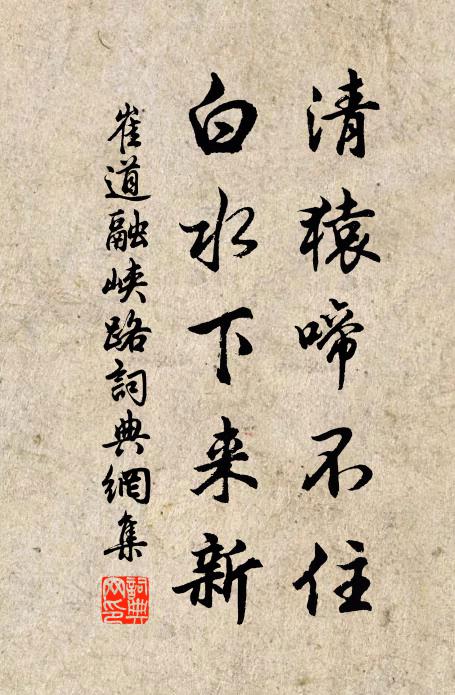 清猿啼不住
白水下来新
崔道融峡路詞典網集
詞典网印